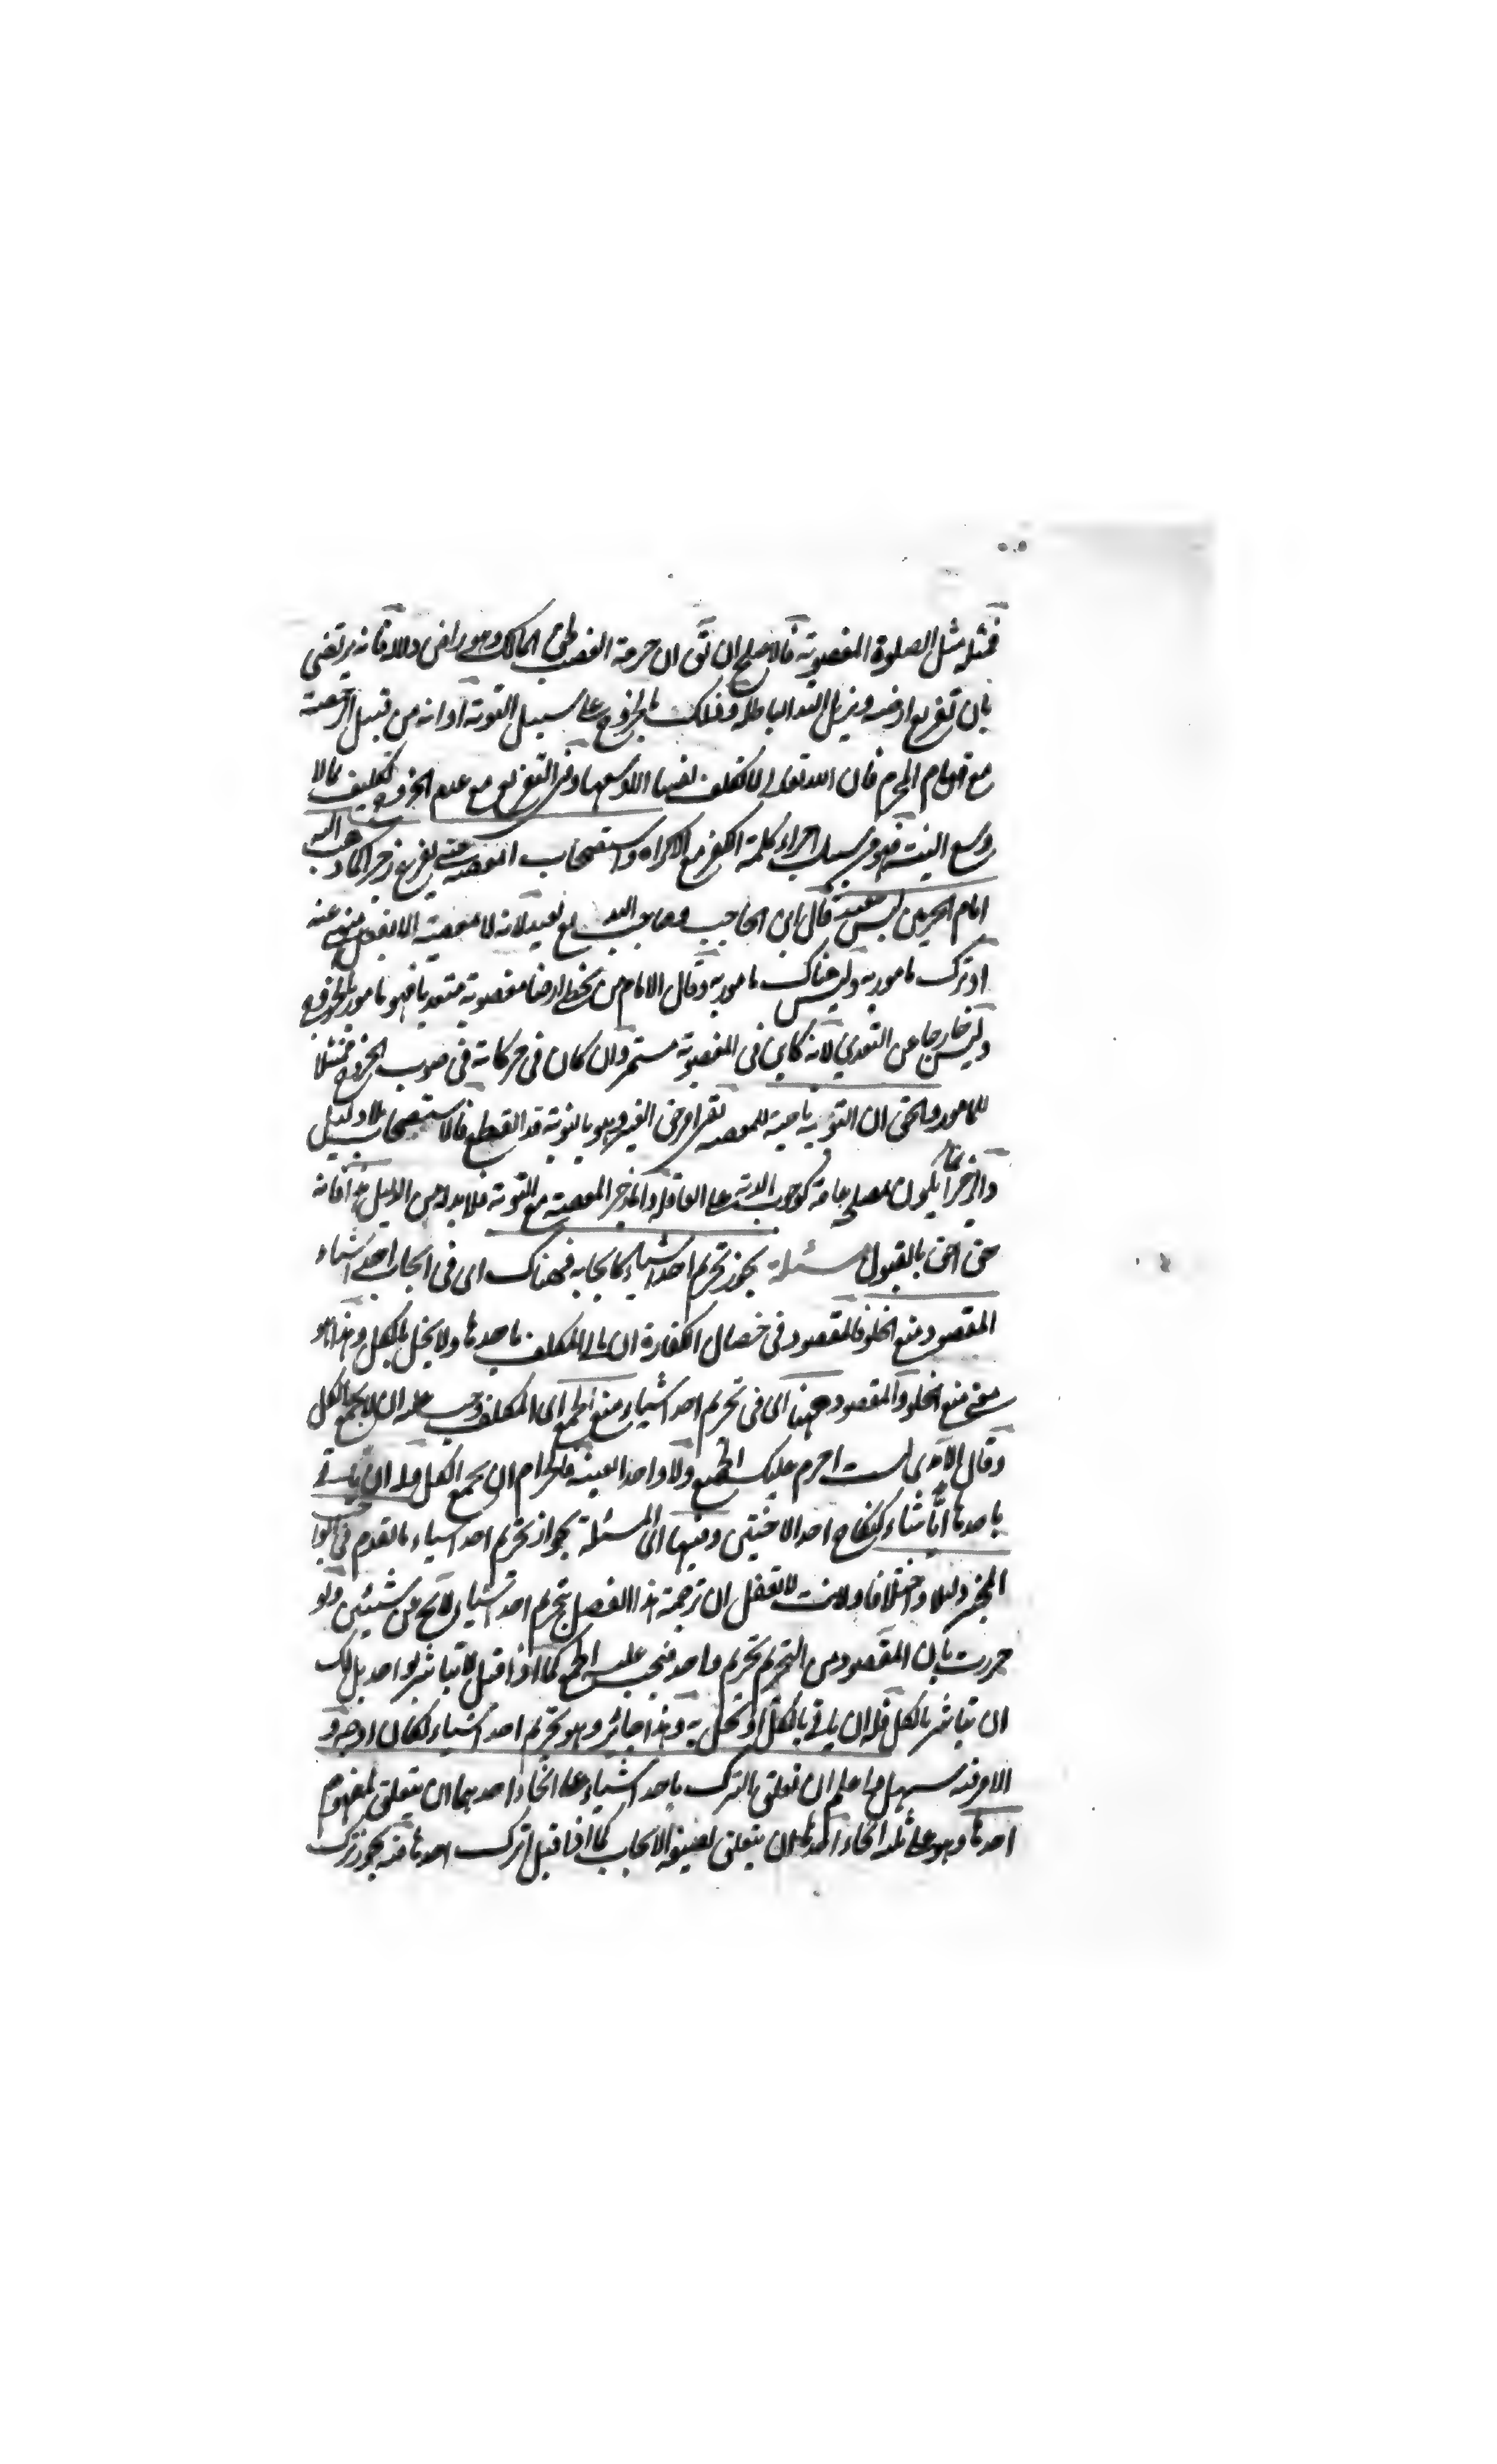 فمثله مثل الصلوة المغصوبة فالاصلح ان يق ان حرمة الغصب المالك وهو راض والا فانه يرتضي
بان تفريع ارضه ويزيل اليد الباطلة وذلك بالخروج على سبيل التوبة او انه من قبيل الرخصة
مع قيام المحرم فان الله تعالى لا تكلف نفسا الا وسعها وفي التفريغ مع عدم الخروج تكليف بما لا
وسع البتة فهو في سبيل اجراء كلمة الكفر مع الاكراه واستصحاب المعصية حتى يفرغ زجرا كما ذهب اليه
امام الحرمين ليس ببعيد قال ابن الحاجب وصاحب البديع بعيد لانه لا معصية الا بفعل منهي عنه
او ترك مامور به وليس هناك مامور به وقال الامام من تخطى ارضا مغصوبة متعديا فهو مامور بالخروج
وليس خارجا عن التعدي لانه كاين في المغصوبة مستمر وان كان في حركاته في صوب الخروج ممتثلا
للامور والحق ان التوبة ماحية للمعصية وهو بالتوبة قد انقطع فالاستصحاب بلا دليل
والزجر انما يكون لمصلحة عامة كوجوب الدية على العاقلة واما زجر المعصية مع التوبة فلا بد له من الدليل هذا فانه
حق احق بالقبول مسئلة يجوز تحريم احد اشياء كايجابه فهناك اي في ايجاب احد اشياء
المقصود منع الخلو فالمقصود في خصال الكفارة ان ياتي المكلف باحدها ولا يخل بالكل وهذا هو
معنى منع الخلو والمقصود ههنا اي في تحريم احد اشياء منع الجمع اي المكلف وجب عليه ان لا يجمع الكل
وقال الآمدي لست احرم عليك الجميع ولا واحدا بعينه فالحرام ان يجمع الكل وله ان ياتي
باحدها ايا شاء كنكاح احد الاختين وفيها اي المسئلة بجواز تحريم احد اشياء ما تقدم في الواجب
المخير دليلا واختلافا ولانت لا تغفل ان ترجمة هذا الفصل بتحريم احد اشياء لا تخ عن شيئين ولو
حررت بان المقصود من التحريم تحريم واحد فيجب عليه الجمع كما اذا قيل لا تباشر بواحد بل لك
ان تباشر بالكل فله ان ياتي بالكل او تخل به وهذا جائز وهو تحريم احد اشياء لكان اوجه و
الامر فيه سهل واعلم ان تعلق الترك باحد اشياء على انحاء احدهما ان يتعلق بمفهوم
احدها وهو على ثلثة انحاء احدها ان يتعلق بصيغة الايجاب كما اذا قيل اترك احدها فيه يجوز ترك